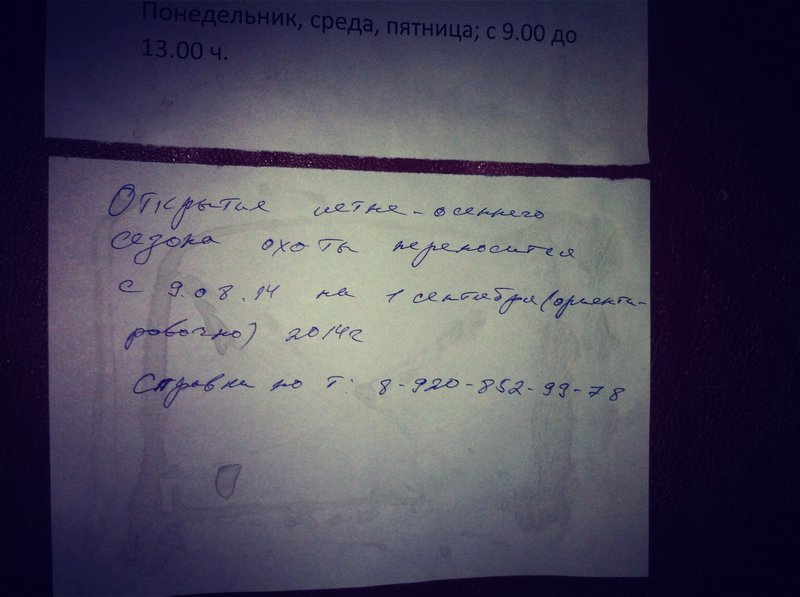 Понедельник, среда, пятница; с 9.00 до
13.00 ч.
Открытие летне-осеннего
сезона охоты переносится
с 9.08.14 на 1 сентября (ориенти-
ровочно) 2014г
Справки по т: 8-920-852-99-78